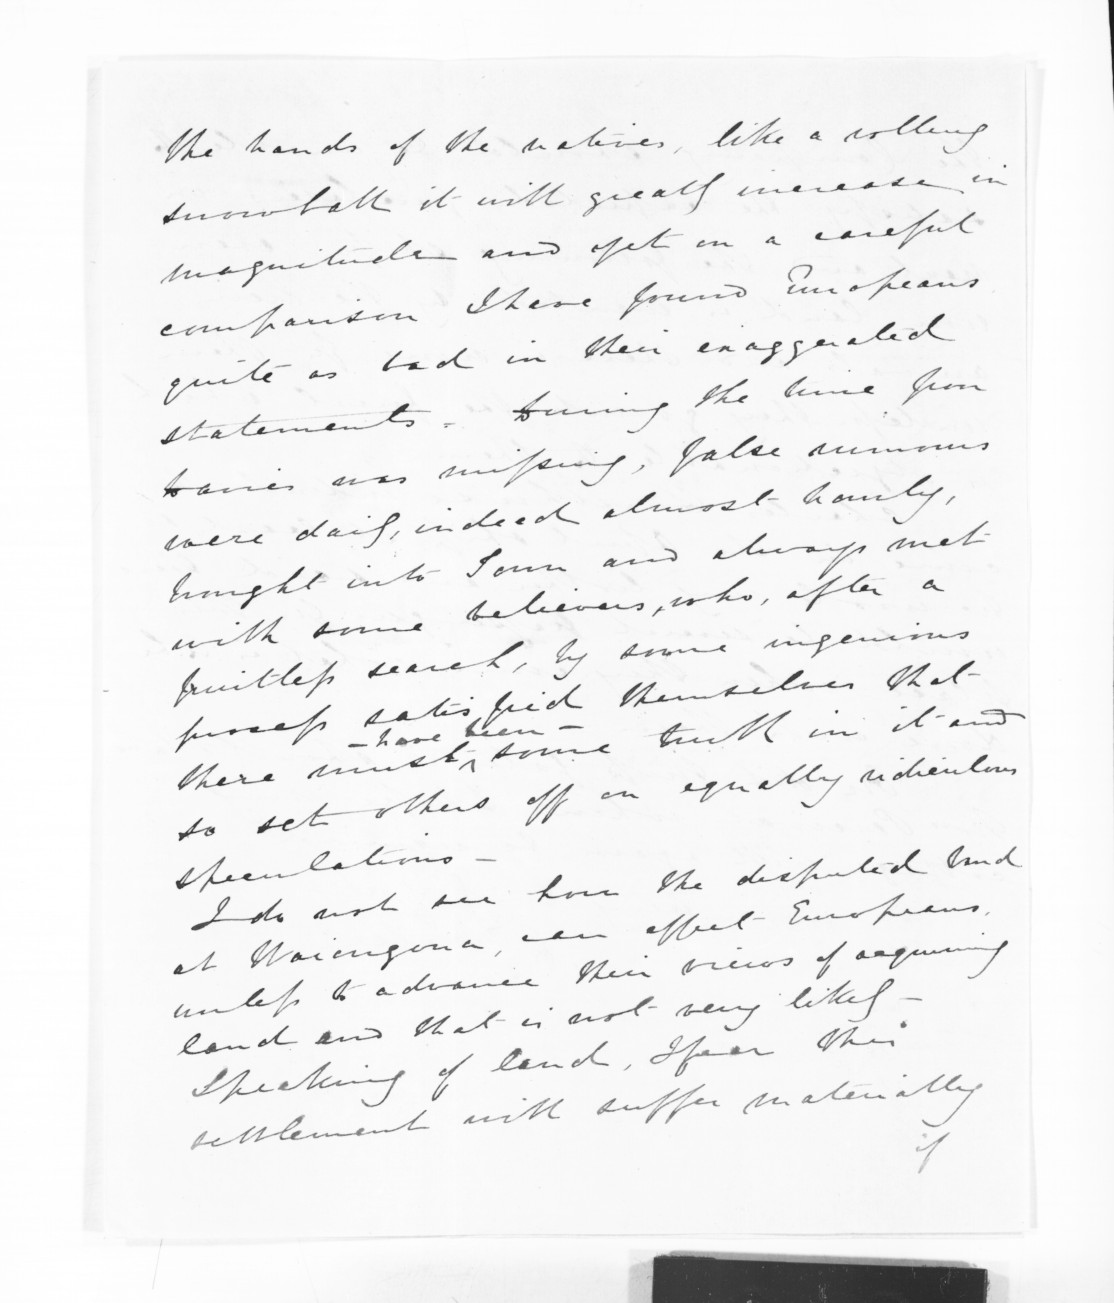 the hands of the natives, like a rolling
snowball it will greatly increase in
magnitude and yet on a careful
comparison I have found Europeans
quite as bad in their exaggerated
statements - During the time poor
Davies was missing, false rumours
were daily, indeed almost hourly,
brought into Town and always met
with some believers, who, after a
fruitless search, by some ingenious
process satisfied themselves that
- have been -
there must some truth in it and
so set others off on equally ridiculous
speculations -
I do not see how the disputed land
at Waiongona, can affect Europeans,
unless to advance their views of acquiring
land and that is not very likely -
Speaking of land, I fear this
settlement will suffer materially
if